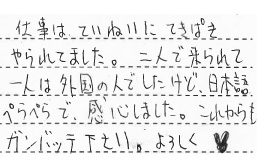 仕事は、ていねいに てきぱき
やられてました。二人で来られて
一人は外国の人でしたけど、日本語
ぺらぺらで、感心しました。これからも
ガンバッテ下さい。よろしく